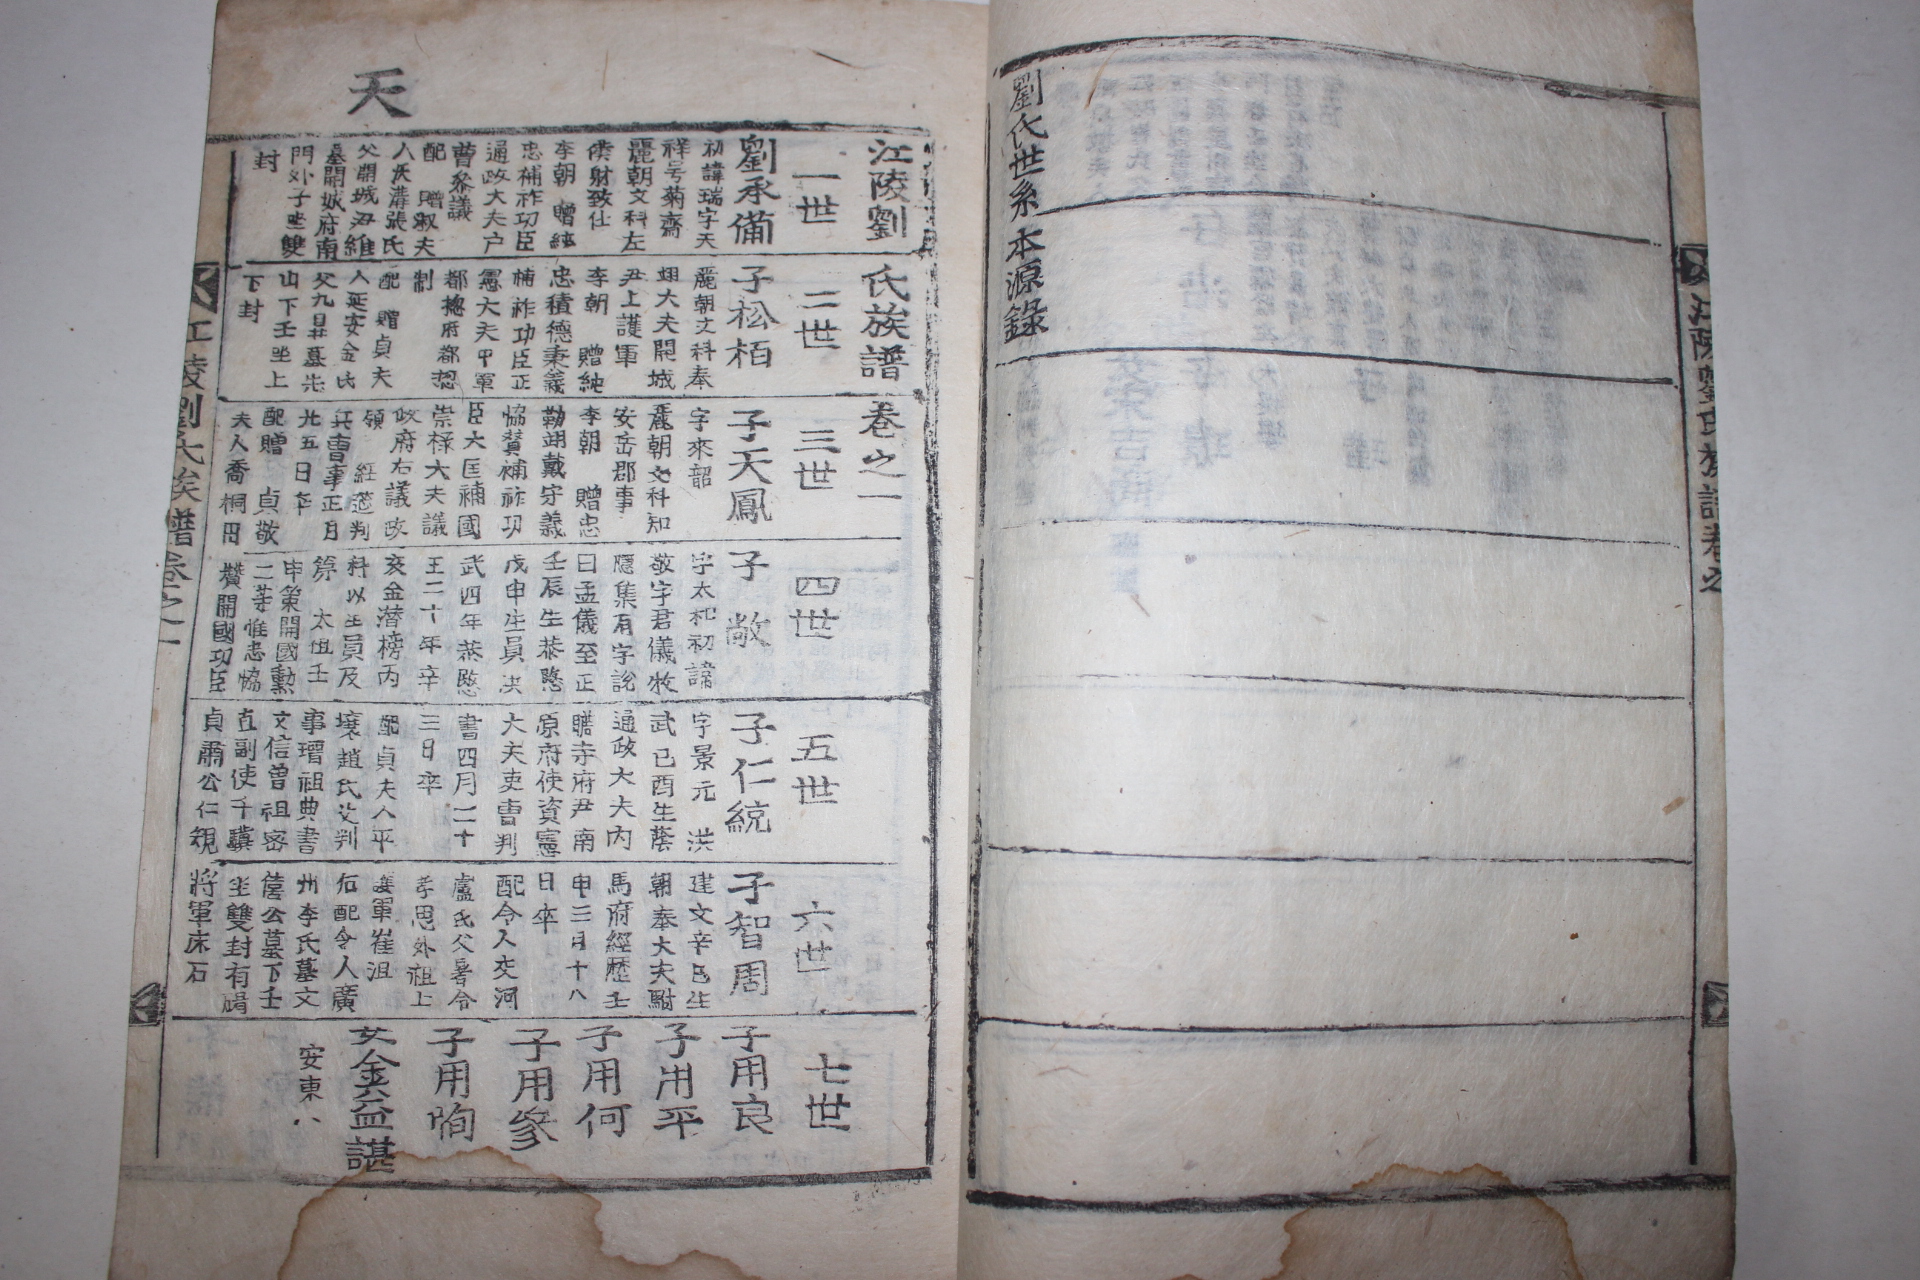 劉氏世系本源錄
江陵劉氏族譜卷之
天
江陵劉氏族譜卷之一
一世
劉承備
初諱瑞字天
祥号菊齋
麗朝文科左
僕射致仕
李朝 贈純
忠補祚功臣
通政大夫户
曹參議
配 贈淑夫
人氏溝張氏
父開城尹維
墓開城府南
門外子坐雙
封
二世
子松栢
麗朝文科奉
翊大夫開城
尹上護軍
李朝 贈純
忠積德秉義
補祚功臣正
憲大夫中軍
都摠府都摠
制
配 贈貞夫
人延安金氏
父九昇墓先
山下壬坐上
下封
三世
子天鳳
字來韶
麗朝文科知
安岳郡事
李朝 贈忠
勤翊戴守義
協贊補祚功
臣大匡補國
崇祿大夫議
政府右議政
領 經筵判
兵曹事正月
九五日卒
配贈 貞敬
夫人喬桐田
四世
子敞
字太和初諱
敬字君儀牧
隱集有字說
曰孟儀至正
壬辰生恭愍
戊申生員洪
武四年恭愍
王二十年辛
亥金潛榜丙
科以生員及
第 太祖壬
申策開國勳
二等推忠協
贊開國功臣
五世
子仁統
字景元 洪
武己酉生蔭
通政大夫內
贍寺府尹南
原府使資憲
大夫吏曹判
書四月二十
三日卒
配貞夫人平
壤趙氏父判
事瑨祖典書
文信曾祖密
直副使千驥
貞肅公仁規
六世
子智周
建文辛巳生
朝奉大夫駙
馬府經歷壬
申三月十八
日卒
配令人交河
盧氏父署令
孝思外祖上
護軍崔沮
右配令人廣
州李氏墓文
僖公墓下壬
坐雙封有䃜
將軍床石
七世
子用良
子用平
子用何
子用參
子用恂
女金益諶
安東人
江陵劉氏族譜卷之一